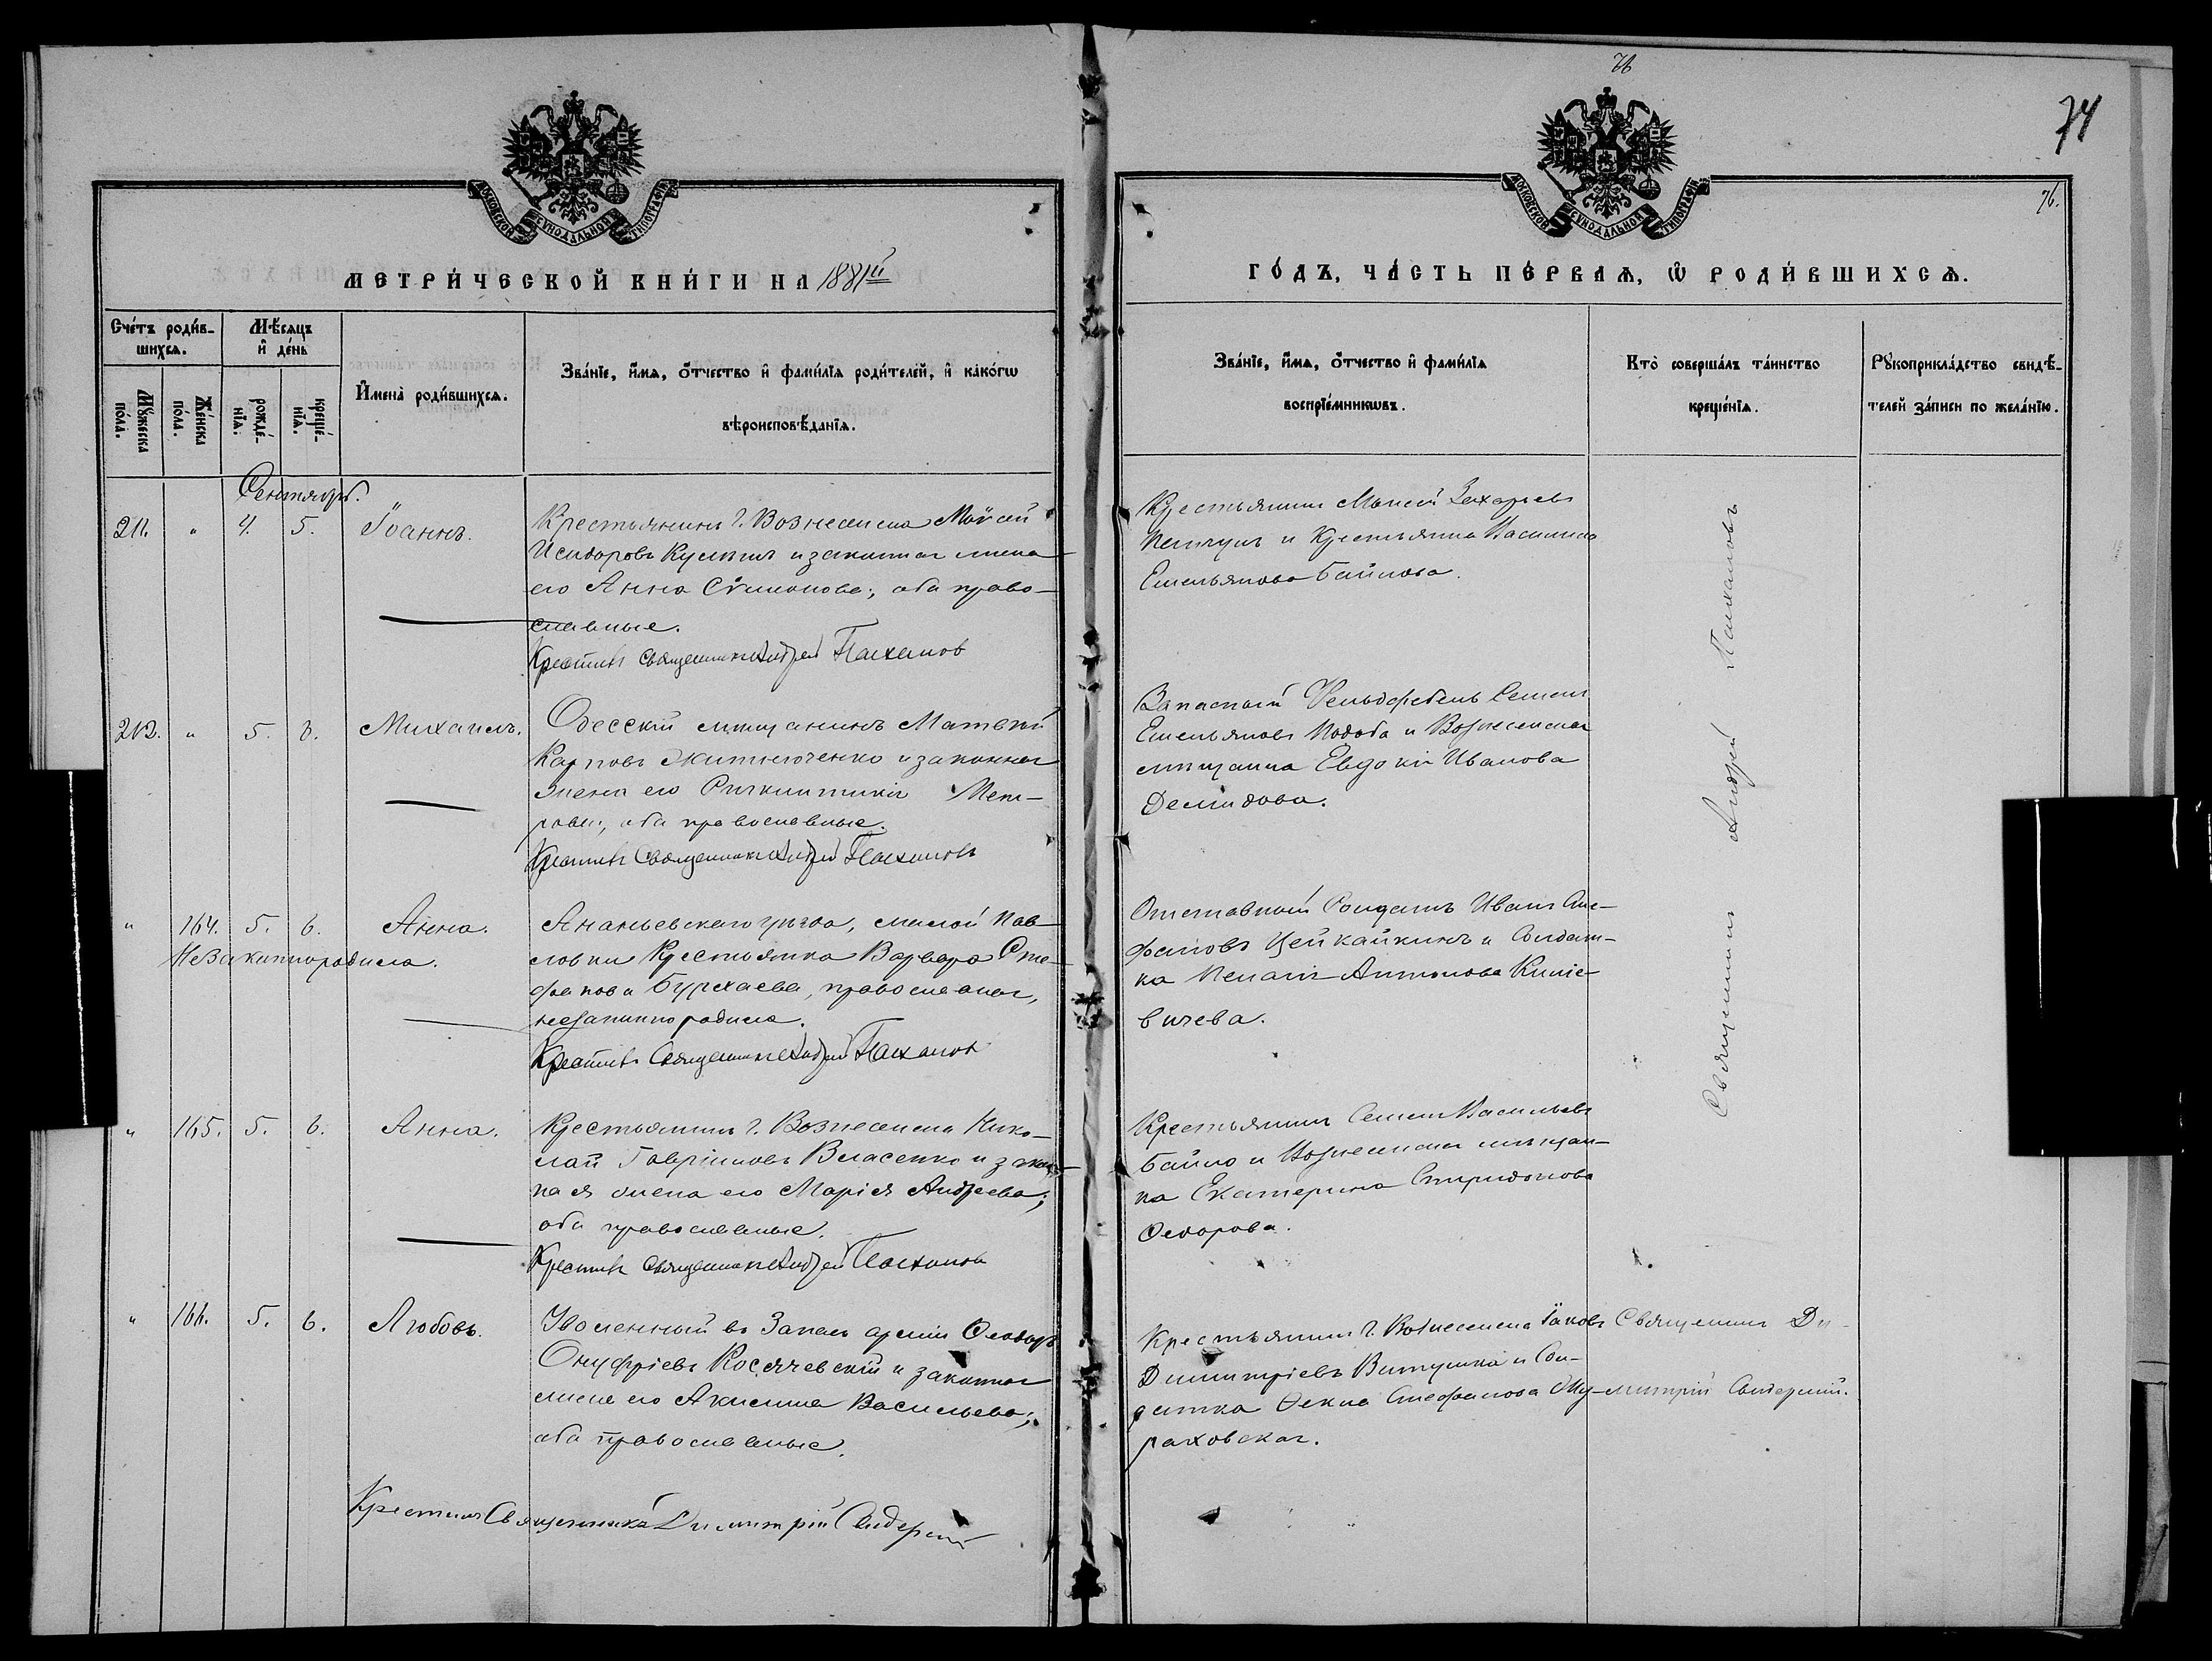 76
74
76.
МОСКОВСКОЙ СУНОДАЛЬНОЙ ТИПОГРАФІИ
МОСКОВСКОЙ СУНОДАЛЬНОЙ ТИПОГРАФІИ
МЕТРИ́ЧЕСКОЙ КНИ́ГИ НА 1881й
ГО́ДЪ, ЧА́СТЬ ПЕ́РВАѦ, Ѡ҆ РОДИ́ВШИХСѦ.
Сче́тъ роди́в-
шихсѧ.
Мѣ́сѧцъ
и҆ де́нь
Мꙋ́жеска
по́ла.
Же́нска
по́ла.
рожде́-
нїѧ.
креще́-
нїѧ.
И҆мена̀ роди́вшихсѧ.
Зва́нїе, и҆́мѧ, ѻ҆́тчество и҆ фами́лїѧ роди́телей, и҆ како́гѡ
вѣроисповѣ́данїѧ.
Зва́нїе, и҆́мѧ, ѻ҆́тчество и҆ фами́лїѧ
воспрїе́мникѡвъ.
Кто̀ соверша́лъ та́инство
креще́нїѧ.
Рꙋкоприкла́дство свидѣ́-
телей за́писи по жела́нїю.
Сентябрь.
211. " 4. 5. Іоаннъ.
Крестьянинъ г. Вознесенска Моѵсей
Исидоровъ и законная жена
его Анна Сѵмонова; оба право-
славные.
Крестилъ Священникъ Андрей Пахалов
Крестьянинъ Моисей Захарьевъ
и Крестьянка Василиса
Емельянова Байлова.
212. " 5. 6. Михаилъ.
Одесскій мѣщанинъ Матвѣй
Карповъ Житнюченко и законная
жена его Пет-
рова; оба православные.
Крестилъ Священникъ Андрей Пахаловъ
Запасный Фельдфебель Семенъ
Емельяновъ и Вознесенская
мѣщанка Евдокія Иванова
Демидова.
" 164. 5. 6. Анна.
Незаконнорадила.
Ананьевскаго уѣзда, Малой Пав-
ловки Крестьянка Варвара Сте-
фанова Бурхаева, православная,
незаконнорадила.
Крестилъ Священникъ Андрей Пахалов
Отставной Солдатъ Иванъ Сте-
фановъ Цейкайкинъ и Солдат-
ка Пелагія Антонова
вичева.
" 165. 5. 6. Анна.
Крестьянинъ г. Вознесенска Нико-
лай Гавріиловъ Власенко и закон-
ная жена его Марія Андреева;
оба православные.
Крестилъ Священникъ Андрей Пахалов
Крестьянинъ Семенъ Васильевъ
Байло и Вознесенская мѣщан-
ка Екатерина Спиридонова
Ѳедорова.
Священникъ Андрей Пахаловъ
" 166. 5. 6. Любовь.
Уволенный въ Запасъ арміи Ѳеодоръ
Онуфріевъ Косячевскій и законная
жена его Аксинья Васильева;
оба православные.
Крестилъ Священникъ Димитрій
Крестьянинъ г. Вознесенска Іаковъ
Димитріевъ Витушка и Сол-
датка Ѳекла Стефанова Му-
раховская.
Священникъ Ди-
митрій